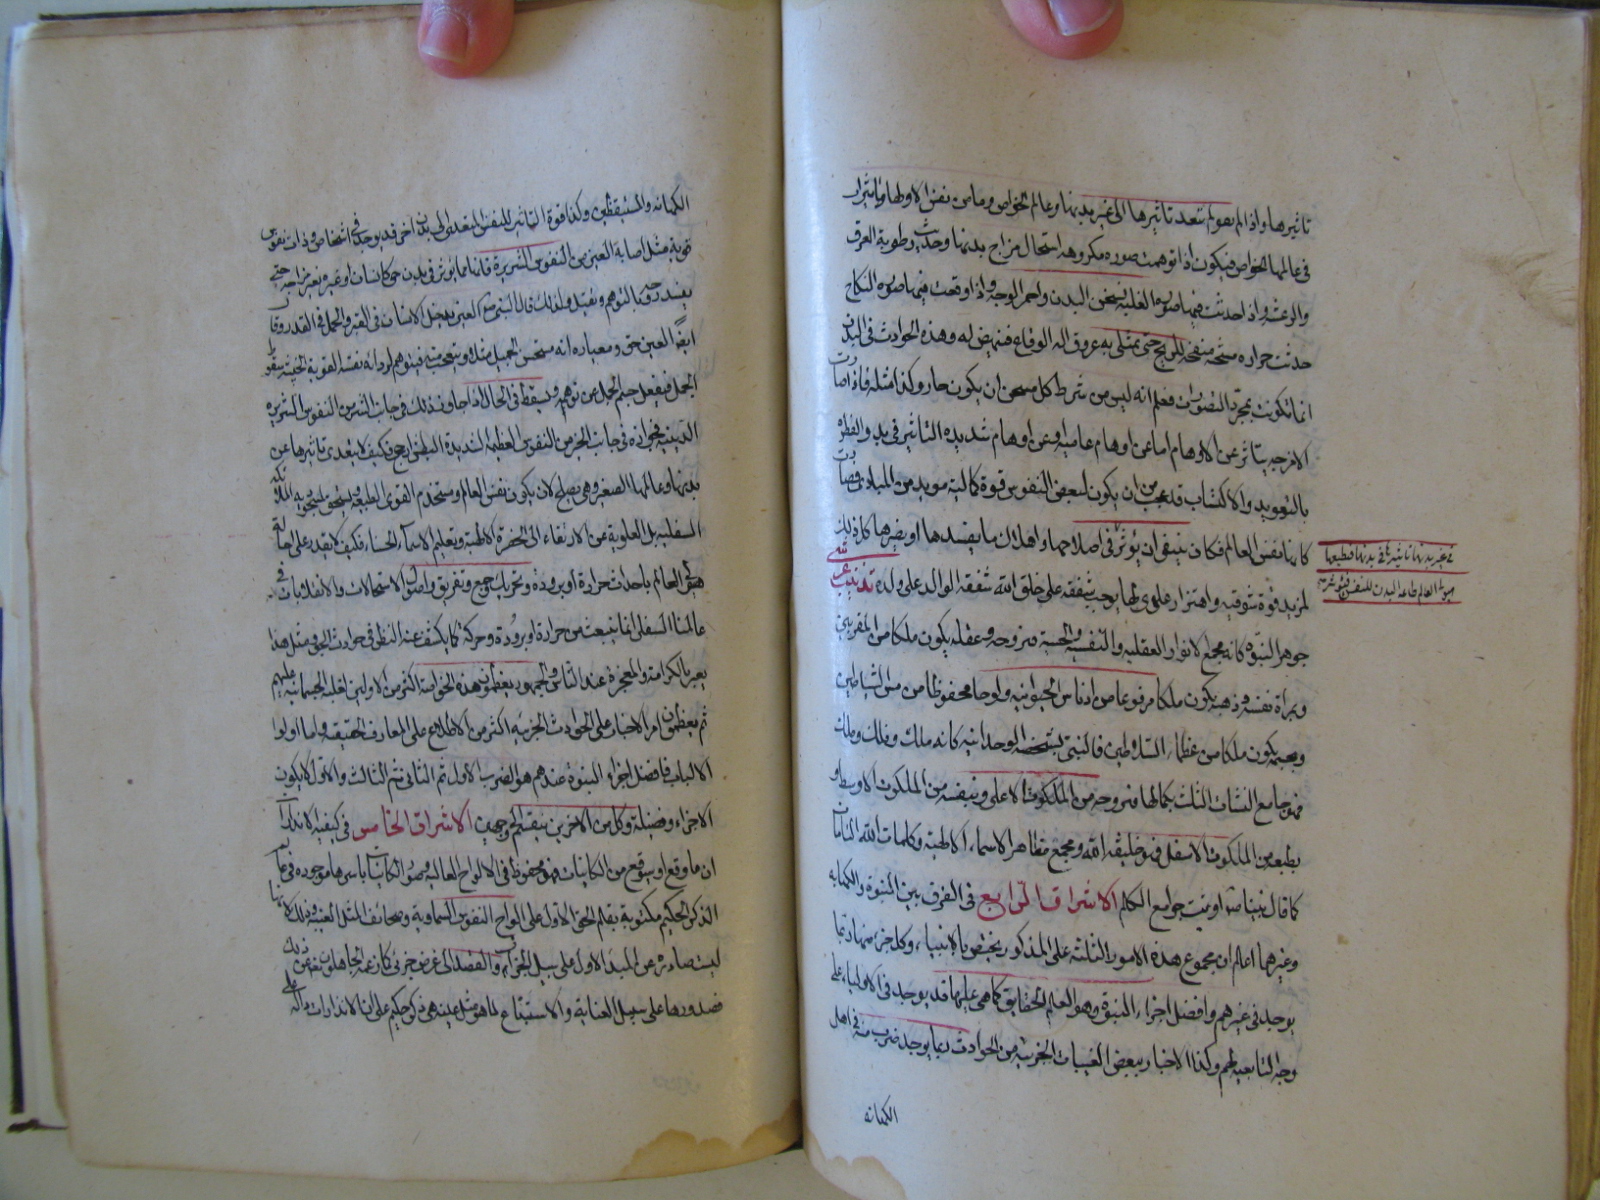 تاثيرها واذا لم يقو لم تتعد تاثيرها الى غير بدنها وعالم الخواص وما من نفس الا ولها تاثيرات
في عالمها الخواص فيكون اذا توهمت صورة مكروهة استحال مزاج بدنها وحدث رطوبة العرق
والرعشة واذا حدثت فيها صورة الغلبة يسخن البدن واحمر الوجه واذا وقعت فيها صورة النكاح
حدثت حرارة مسخنة منفخة للريح حتى تمتلى به عروق الة الوقاع فتنهض له وهذه الحوادث في البدن
انما تكونت بمجرد التصورات فعلم انه ليس من شرط كل مسخن ان يكون حار وكذا مثله فاذا صارت
الامزجة يتاثر عن الاوهام اما عن اوهام عامية او عن اوهام شديدة التاثير في بدو الفطرة
بالتعويد والاكتساب فلا عجب من ان يكون لبعض النفوس قوة كمالية مويد من المبادى فصارت
كانها نفس العالم فكان ينبغى ان يوثر في اصلاحها واهلاك ما يفسدها او يضرها كل ذلك
لمزيد قوة شوقية واهتزاز علوى لها يوجب شفقة على خلق الله شفقة الوالد على ولده تذنيب عرشى
جوهر النبوة كانه مجمع الانوار العقلية والنفسية والحسية فبروحه وعقله يكون ملكا من المقربين
وبمرآة نفسه وذهنه يكون ملكا مرفوعا من ادناس الحيوانية ولوحا محفوظا من مس الشياطين
وبحسه يكون ملكا من عظماء السلاطين فالنبى بشخصه الوحدانية كانه ملك وفلك وملك
فهو جامع النشات الثلث بكمالها فبروحه من الملكوت الاعلى وبنفسه من الملكوت الاوسط و
بطبعه من الملكوت الاسفل فهو خليفة الله ومجمع مظاهر الاسماء الالهية وكلمات الله التامات
كما قال نبينا صه اوتيت جوامع الكلم الاشراق الرابع في الفرق بين النبوة والكهانة
وغيرهما اعلم ان مجموع هذه الامور الثلثة على المذكور يختص بالانبياء وكل جزء منها ربما
يوجد في غيرهم وافضل اجزاء النبوة وهو العلم بالحقايق كما هى عليها قد يوجد في الاولياء على
وجه التابعية لهم وكذا الاخبار ببعض المغيبات الجزئية من الحوادث ربما يوجد ضرب منه في اهل
الكهانة
في غير بدنها تاثيرها في بدنها فيطيعها
هيولى العالم طاعة البدن للنفس فتوثر في
الكهانة والمستيقظين وكذا قوة التاثير للنفس المتعدى الى بدن آخر قد يوجد في اشخاص وذات نفوس
قوية مثل اصابة العين من النفوس الشريرة فانها مما يوثر في بدن حى كانسان او غيره بغير مزاجه حتى
يفسد روحه بالتوهم ويقتل ولذلك قال النبى صع العين يدخل الانسان في القبر والجمل في القدر وقال
ايضا العين حق ومعياره انه مستحسن الجميل مثلا ويتعجب فيتوهم لرداءة نفسه القوية الخبيثة سقوط
الجمل فينفعل جسم الجمل عن توهمه ويسقط في الحال اذا جاز ذلك في جانب الشر من النفوس الشريرة
الدينية فجوازه في جانب الخير من النفوس العظيمة الشديدة البطش ارجح فكيف لا يتعدى تاثيرها عن
بدنها وعالمها الصغير وهى يصلح لان يكون نفس العالم ويستخدم القوى الطبيعية ويستحق لسجود الملائكة
السفلية بل العلوية عن الارتقاء الى الحضرة الالهية وتعليم الاسماء الحسنى فكيف لا يقدر على احالة
هيولى العالم باحداث حرارة او برودة وتحريك وجمع وتفريق واصول الاستحالات والانقلابات في
عالمنا السفلى انما ينبعث من حرارة او برودة وحركة كما يكشف عند النظر في حوادث الجو ومثل هذا
يعبر بالكرامة والمعجزة عند الناس والجمهور يعظمون هذه الخواصة اكثر من الاولين لغلبة الجسمانية عليهم
ثم يعظمون امر الاخبار على الحوادث الجزئية اكثر من الاطلاع على المعارف الحقيقية واما اولوا
الالباب فافضل اجزاء النبوة عندهم هو الضرب الاول ثم الثانى ثم الثالث والاول لا يكون
الاجزاء وفضيلة وكل من الاخرين ينقسم الى وجهين الاشراق الخامس في كيفية الانذارات
ان ما وقع او سيقع من الكاينات فهو محفوظ في الالواح العالية وصور الكاينات باسرها موجودة في عالم
الذكر الحكيم مكتوبة بقلم الحق الاول على الواح النفوس السماوية وصحائف المثل الغيبية وذلك لانها
ليست صادرة عن المبدا الاول على سبيل الجزاف والقصد الى غرض جزئى كما زعمه الجاهلون تعالى عن ذلك
فصدورها على سبيل العناية والاستتباع لما هو مثل عينه فى ذكر حكيم على ان الانذارات دالة على